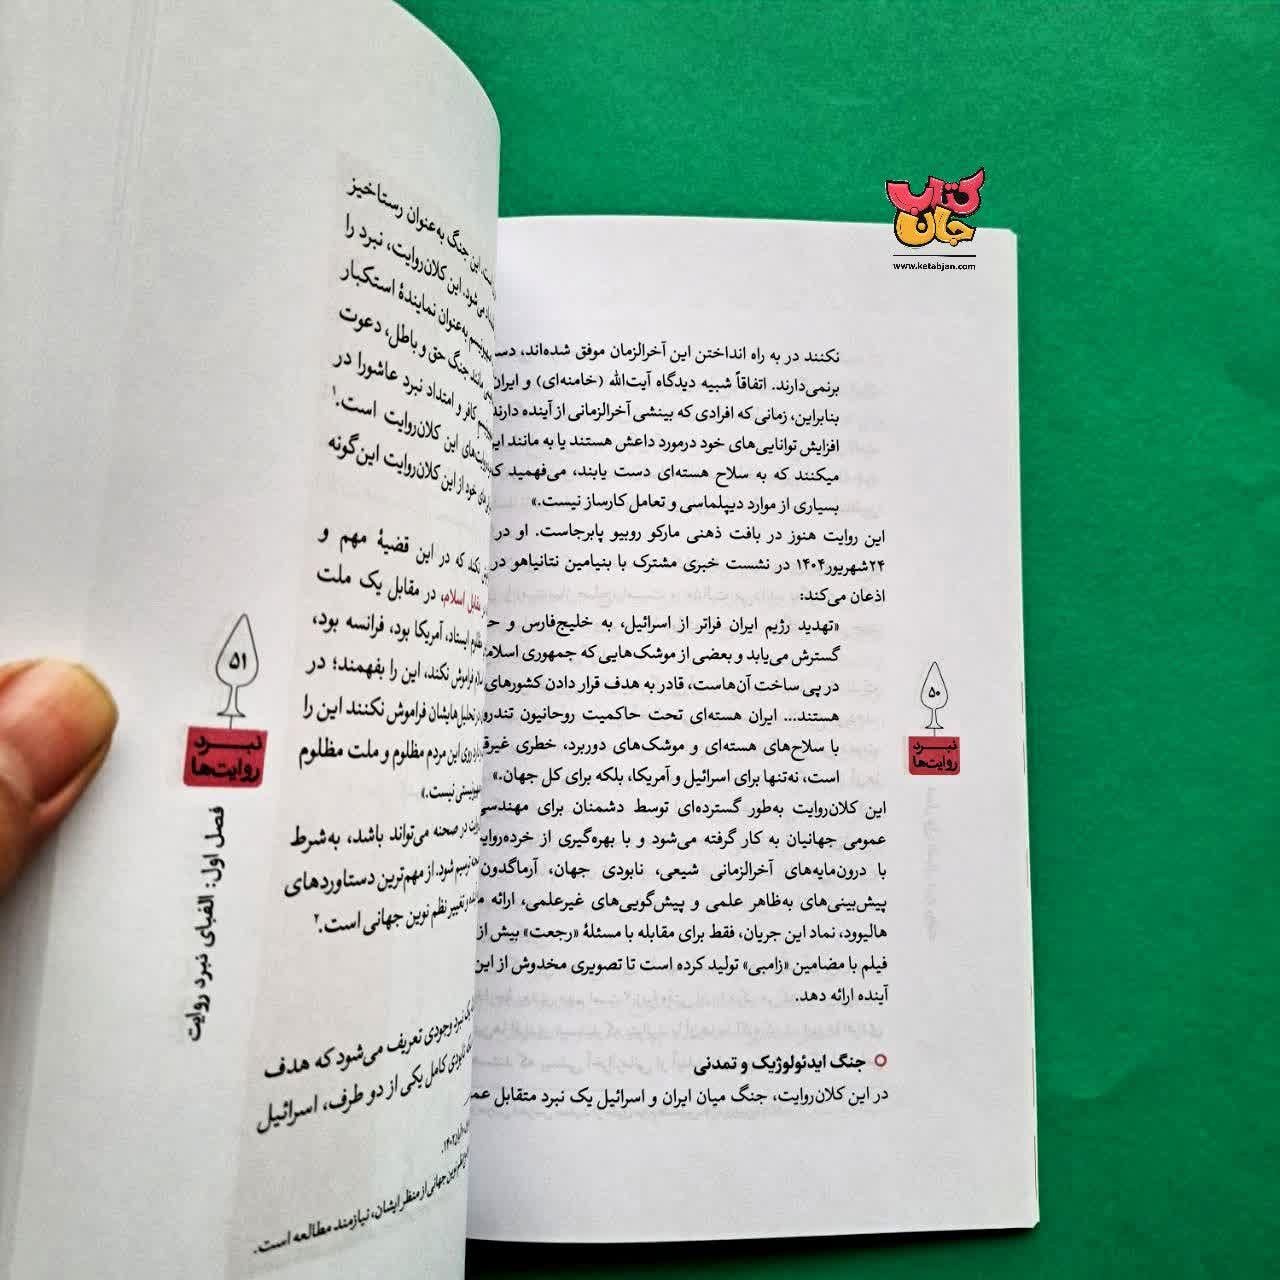 کتاب
جان
www.ketabjan.com
نکنند در به راه انداختن این آخرالزمان موفق شده‌اند،
برنمی‌دارند. اتفاقاً شبیه دیدگاه آیت‌الله (خامنه‌ای) و ایران
بنابراین، زمانی که افرادی که بینشی آخرالزمانی از آینده دارند
افزایش توانایی‌های خود درمورد داعش هستند یا به مانند
میکنند که به سلاح هسته‌ای دست یابند، می‌فهمید
بسیاری از موارد دیپلماسی و تعامل کارساز نیست.»
این روایت هنوز در بافت ذهنی مارکو روبیو پابرجاست. او در
۲۴شهریور۱۴۰۴ در نشست خبری مشترک با بنیامین نتانیاهو در
اذعان می‌کند:
«تهدید رژیم ایران فراتر از اسرائیل، به خلیج‌فارس و
گسترش می‌یابد و بعضی از موشک‌هایی که جمهوری
در پی ساخت آن‌هاست، قادر به هدف قرار دادن کشورهای
هستند... ایران هسته‌ای تحت حاکمیت روحانیون
با سلاح‌های هسته‌ای و موشک‌های دوربرد، خطری
است، نه‌تنها برای اسرائیل و آمریکا، بلکه برای کل جهان.»
این کلان‌روایت به‌طور گسترده‌ای توسط دشمنان برای مهندسی
عمومی جهانیان به کار گرفته می‌شود و با بهره‌گیری از
با درون‌مایه‌های آخرالزمانی شیعی، نابودی جهان، آرماگدون
پیش‌بینی‌های به‌ظاهر علمی و پیش‌گویی‌های غیرعلمی، ارائه
هالیوود، نماد این جریان، فقط برای مقابله با مسئلهٔ «رجعت» بیش از
فیلم با مضامین «زامبی» تولید کرده است تا تصویری مخدوش از این
آینده ارائه دهد.
جنگ ایدئولوژیک و تمدنی
در این کلان‌روایت، جنگ میان ایران و اسرائیل یک نبرد متقابل
۵۰
نبرد
روایت‌ها
این جنگ به‌عنوان رستاخیز
می‌شود. این کلان‌روایت، نبرد را
به‌عنوان نمایندهٔ استکبار
مانند جنگ حق و باطل، دعوت
کافر و امتداد نبرد عاشورا در
این کلان‌روایت است.۱
خود از این کلان‌روایت این‌گونه
که در این قضیهٔ مهم و
مقابل اسلام، در مقابل یک ملت
مظلوم ایستاد، آمریکا بود، فرانسه بود،
فراموش نکند، این را بفهمند؛ در
تحلیل‌هایشان فراموش نکنند این را
روی این مردم مظلوم و ملت مظلوم
نیست.»
در صحنه می‌تواند باشد، به‌شرط
ترسیم شود. از مهم‌ترین دستاوردهای
تغییر نظم نوین جهانی است.۲
یک نبرد وجودی تعریف می‌شود که هدف
نابودی کامل یکی از دو طرف، اسرائیل
نوین جهانی از منظر ایشان، نیازمند مطالعه است.
۵۱
نبرد
روایت‌ها
فصل اول: الفبای نبرد روایت